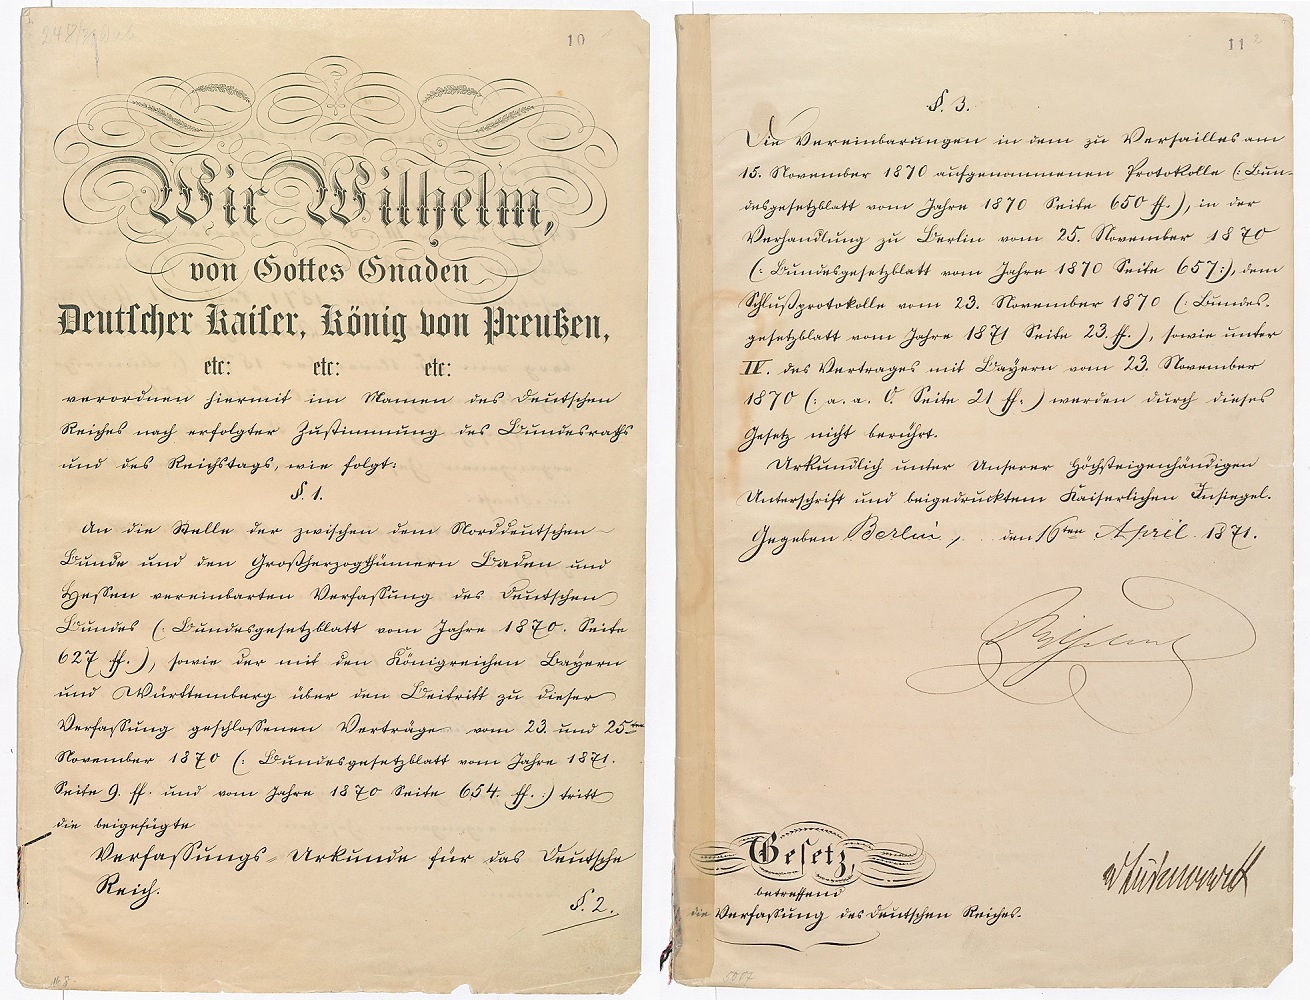 10
Wir Wilhelm,
von Gottes Gnaden
Deutscher Kaiser, König von Preußen,
etc: etc: etc:
verordnen hiermit im Namen des Deutschen
Reiches nach erfolgter Zustimmung des Bundesraths
und des Reichstags, wie folgt:
§. 1.
An die Stelle der zwischen dem Norddeutschen
Bunde und den Großherzogthümern Baden und
Hessen vereinbarten Verfassung des Deutschen
Bundes (: Bundesgesetzblatt vom Jahre 1870. Seite
627 ff.), sowie der mit den Königreichen Bayern
und Württemberg über den Beitritt zu dieser
Verfassung geschlossenen Verträge vom 23. und 25ten
November 1870 (: Bundesgesetzblatt vom Jahre 1871.
Seite 9. ff. und vom Jahre 1870 Seite 654. ff. :) tritt
die beigefügte
Verfassungs-Urkunde für das Deutsche
Reich.
§. 2.
11
§. 3.
Die Vereinbarungen in dem zu Versailles am
15. November 1870 aufgenommenen Protokolle (: Bun-
desgesetzblatt vom Jahre 1870 Seite 650 ff.), in der
Verhandlung zu Berlin vom 25. November 1870
(: Bundesgesetzblatt vom Jahre 1870 Seite 657:), dem
Schlußprotokolle vom 23. November 1870 (: Bundes-
gesetzblatt vom Jahre 1871 Seite 23. ff.), sowie unter
IV. des Vertrages mit Bayern vom 23. November
1870 (: a. a. O. Seite 21 ff.) werden durch dieses
Gesetz nicht berührt.
Urkundlich unter Unserer Höchsteigenhändigen
Unterschrift und beigedrucktem Kaiserlichen Insiegel.
Gegeben Berlin, den 16ten April 1871.
Wilhelm
Gesetz,
betreffend
die Verfassung des Deutschen Reiches.